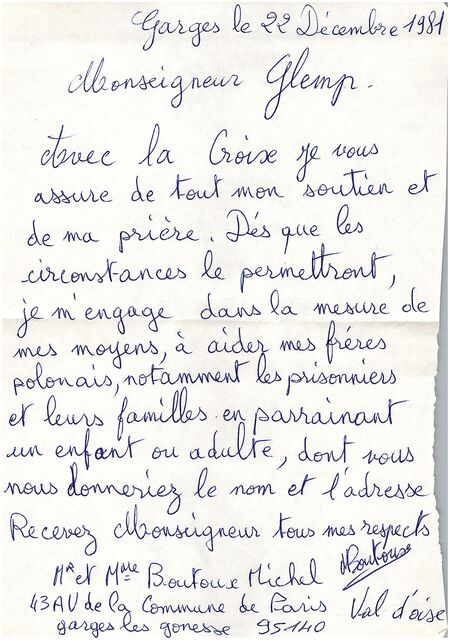 Garges le 22 Décembre 1981
Monseigneur Glemp.
Avec la Croix je vous
assure de tout mon soutien et
de ma prière. Dés que les
circonstances le permettront,
je m'engage dans la mesure de
mes moyens, à aider mes fréres
polonais, notamment les prisonniers
et leurs familles en parrainant
un enfant ou adulte, dont vous
nous donneriez le nom et l'adresse
Recevez Monseigneur tous mes respects
MBoutoux
Mr et Mme Boutoux Michel
43 AV de la Commune de Paris Val d'oise
garges les gonesse 95140